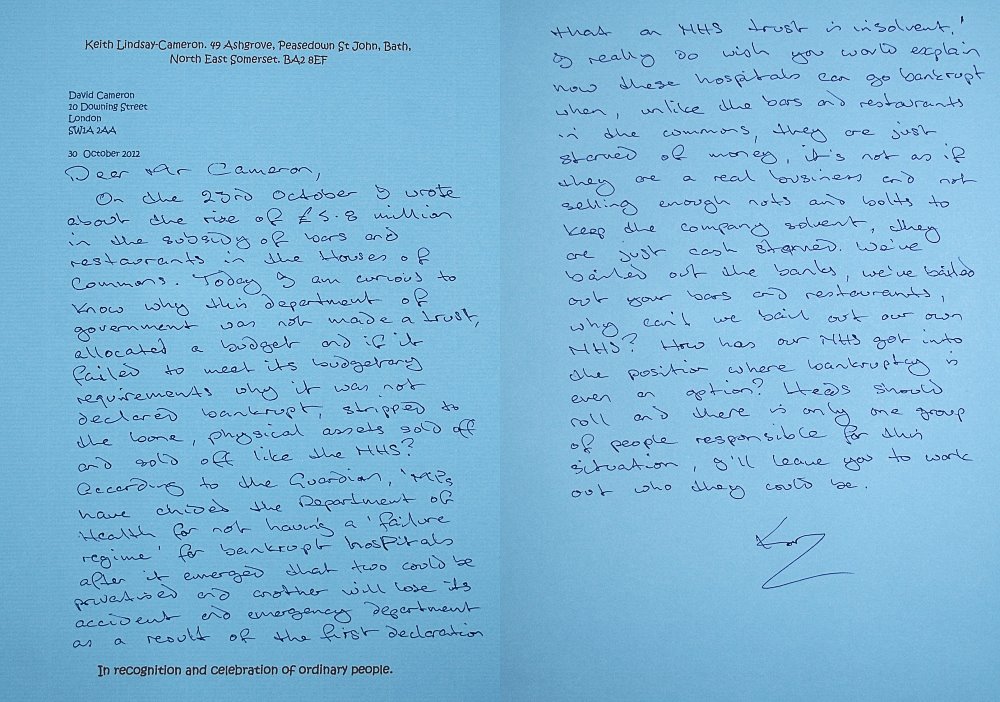 Keith Lindsay-Cameron. 49 Ashgrove, Peasedown St John, Bath,
North East Somerset. BA2 8EF
David Cameron
10 Downing Street
London
SW1A 2AA
30 October 2012
Dear Mr Cameron,
On the 23rd October I wrote
about the rise of £5.8 million
in the subsidy of bars and
restaurants in the Houses of
Commons. Today I am curious to
know why this department of
government was not made a trust,
allocated a budget and if it
failed to meet its budgetary
requirements why it was not
declared bankrupt, stripped to
the bone, physical assets sold off
and sold off like the NHS?
According to the Guardian, 'MPs
have chided the Department of
Health for not having a 'failure
regime' for bankrupt hospitals
after it emerged that two could be
privatised and another will lose its
accident and emergency department
as a result of the first declaration
In recognition and celebration of ordinary people.
that an NHS trust is insolvent.'
I really do wish you would explain
how these hospitals can go bankrupt
when, unlike the bars and restaurants
in the commons, they are just
starved of money, it's not as if
they are a real business and not
selling enough nuts and bolts to
keep the company solvent, they
are just cash starved. We've
bailed out the banks, we've bailed
out your bars and restaurants,
why can't we bail out our own
NHS? How has our NHS got into
the position where bankruptcy is
even an option? Heads should
roll and there is only one group
of people responsible for this
situation, I'll leave you to work
out who they could be.